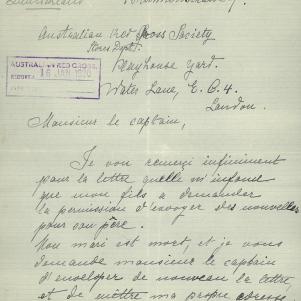 Australian Red Cross Society
Stores Dept.
Playhouse Yard.
AUSTRAL RED CROSS
16 JAN 1920
Water Lane, E.C.4.
London.
Monsieur le captain,
Je vou remerci infiniment
pour la lettre quelle m'infond
que mon fils a demander
la permission d'envoyer des nouvelles
pour son père.
Mon mari est mort, et je vous
demande monsieur le captain
d'enveloper de nouveau la lettre,
et de mettre ma propre adresse